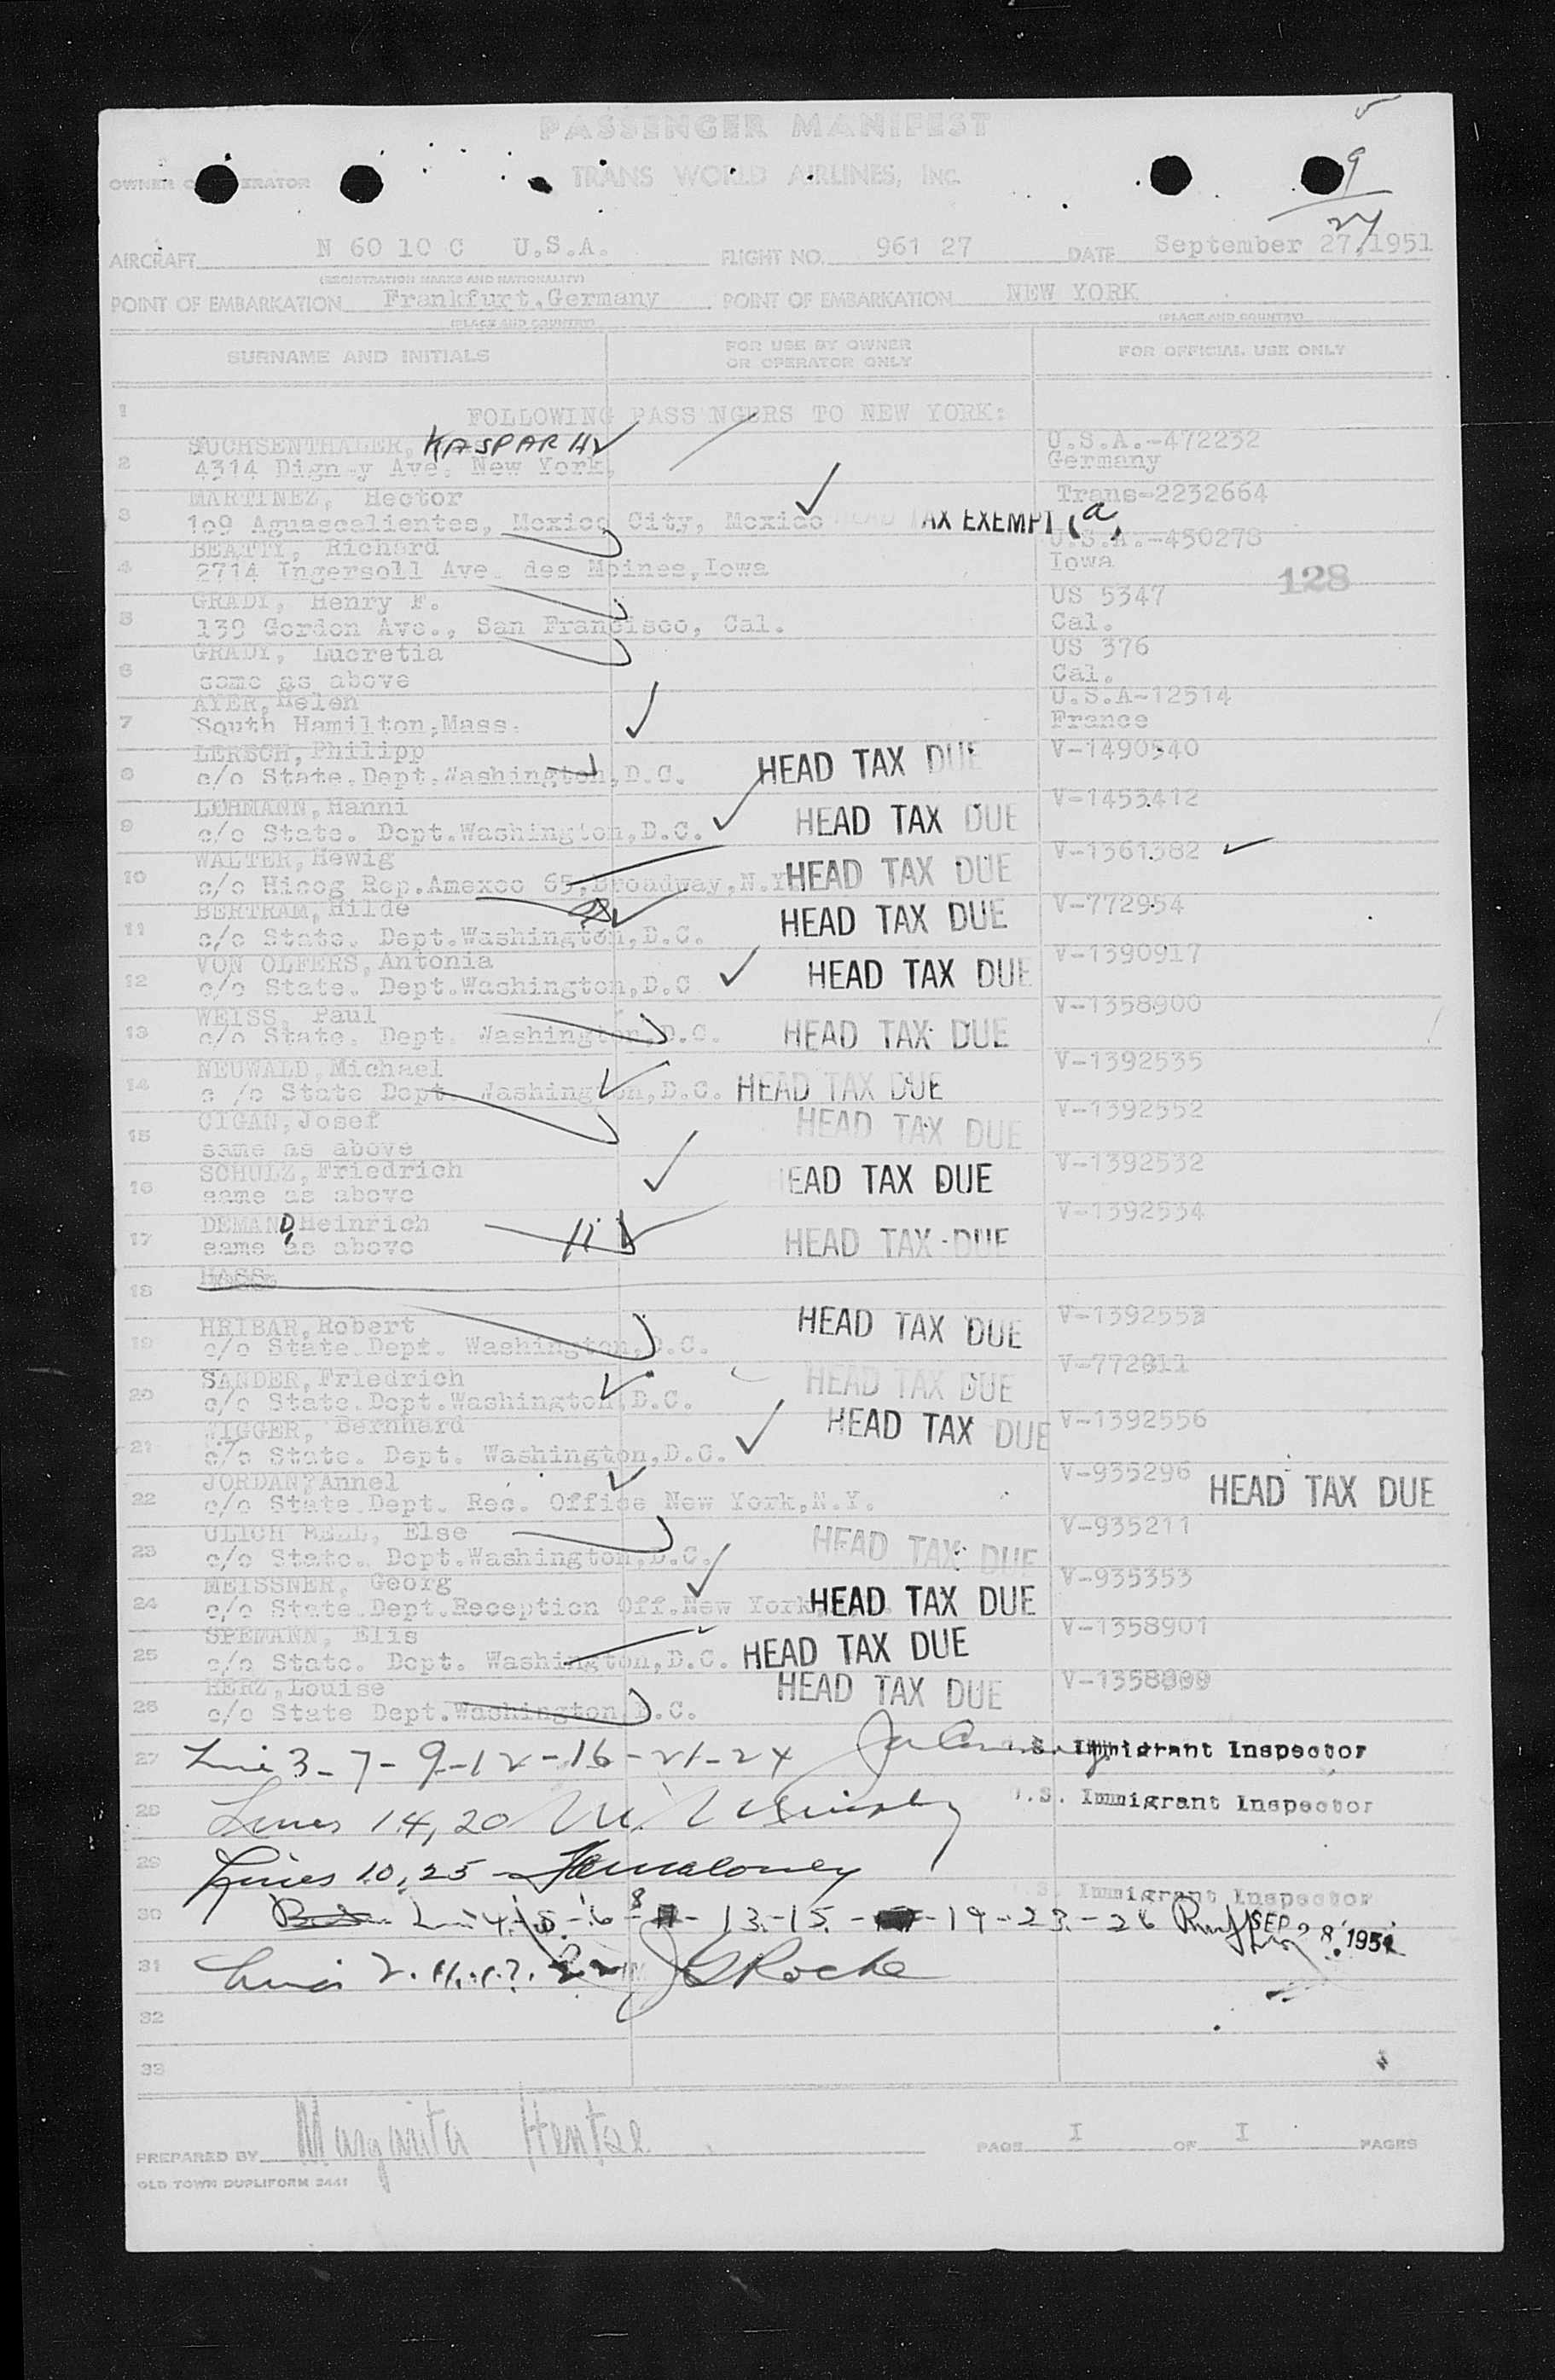 PASSENGER MANIFEST
TRANS WORLD AIRLINES, INC.
9
27
AIRCRAFT N 60 10 C U.S.A. FLIGHT NO. 961 27 DATE September 27, 1951
(REGISTRATION MARKS AND NATIONALITY)
POINT OF EMBARKATION Frankfurt, Germany POINT OF EMBARKATION NEW YORK
(PLACE AND COUNTRY) (PLACE AND COUNTRY)
SURNAME AND INITIALS FOR USE BY OWNER OR OPERATOR ONLY FOR OFFICIAL USE ONLY
1 FOLLOWING PASSENGERS TO NEW YORK:
KASPAR H U.S.A.-472232
2 4314 Ave. New York, Germany
MARTINEZ, Hector Trans-2232664
3 109 Aguascalientes, Mexico City, Mexico HEAD TAX EXEMPT (a)
BEATTY, Richard U.S.A.-450278
4 2714 Ingersoll Ave. des Moines, Iowa Iowa
128
GRADY, Henry F. US 5347
5 139 Gordon Ave., San Francisco, Cal. Cal.
GRADY, Lucretia US 376
6 same as above Cal.
AYER, Helen U.S.A-12514
7 South Hamilton, Mass. France
LERSCH, Philipp V-1490540
8 c/o State.Dept.Washington, D.C. HEAD TAX DUE
LOHMANN, Hanni V-1453412
9 c/o State. Dept.Washington, D.C. HEAD TAX DUE
WALTER, Hewig V-1361382
10 c/o Hicog Rep.Amexco 65, Broadway, N.Y HEAD TAX DUE
BERTRAM, Hilde V-772954
11 c/o State. Dept.Washington, D.C. HEAD TAX DUE
VON OLFERS, Antonia V-1390917
12 c/o State. Dept.Washington, D.C HEAD TAX DUE
WEISS, Paul V-1358900
13 c/o State. Dept. Washington, D.C. HEAD TAX DUE
NEUWALD, Michael V-1392535
14 c /o State Dept. Washington, D.C. HEAD TAX DUE
CIGAN, Josef V-1392552
15 same as above HEAD TAX DUE
SCHULZ, Friedrich V-1392532
16 same as above HEAD TAX DUE
DEMAND, Heinrich V-1392534
17 same as above HEAD TAX DUE
18 HASS
HRIBAR, Robert V-1392553
19 c/o State.Dept. Washington, D.C. HEAD TAX DUE
SANDER, Friedrich V-772811
20 c/o State.Dept.Washington, D.C. HEAD TAX DUE
WIGGER, Bernhard V-1392556
21 c/o State. Dept. Washington, D.C. HEAD TAX DUE
JORDAN? Annel V-935296
22 c/o State.Dept. Rec. Office New York, N.Y. HEAD TAX DUE
ULICH Else V-935211
23 c/o State. Dept.Washington, D.C. HEAD TAX DUE
MEISSNER, Georg V-935353
24 c/o State.Dept.Reception Off.New York HEAD TAX DUE
SPEMANN, Elis V-1358901
25 c/o State. Dept. Washington, D.C. HEAD TAX DUE
HERZ, Louise
26 c/o State Dept.Washington D.C. HEAD TAX DUE
27 Line 3-7-9-12-16-21-24 U.S. Immigrant Inspector
28 Lines 14, 20 U.S. Immigrant Inspector
29 Lines 10, 25 Maloney
U.S. Immigrant Inspector
30 4-5-6-8 -13-15- -19-23-26 SEP 28 1951
31 Lines 2. 11. 17. 22 Roche
32
33
PREPARED BY Margarita Hentze PAGE I OF I PAGES
OLD TOWN DUPLIFORM 2441